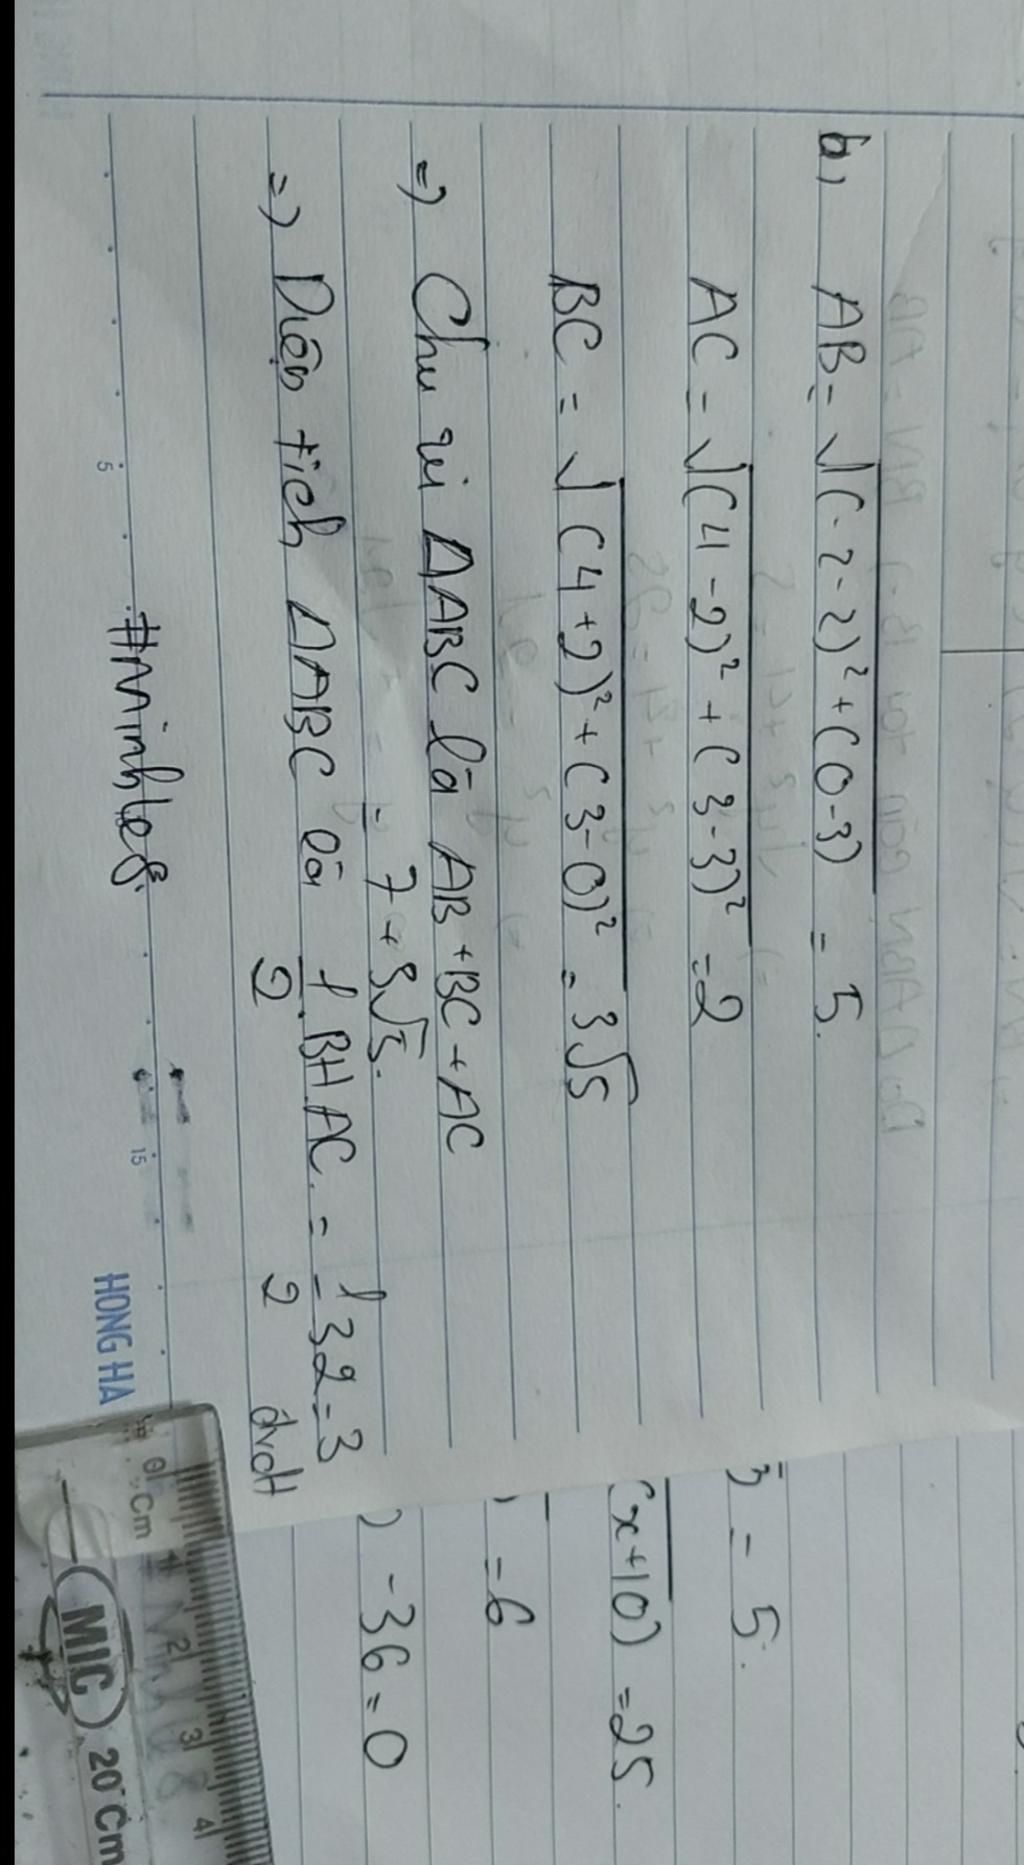 b, AB = √(-2-2)² + (0-3) = 5.
AC = √(4-2)² + (3-3)² = 2
BC = √(4+2)² + (3-0)² = 3√5
=) Chu vi ΔABC là AB + BC + AC
= 7 + 3√5.
=) Diện tích ΔABC là 1/2 . BH.AC. = 1/2 3 2 = 3
đvdt
#Minhle8.
5
15
HONG HA
= 5.
(x+10) = 25.
= 6
) - 36 = 0
0 Cm 1 2 3 4
MIC 20 Cm